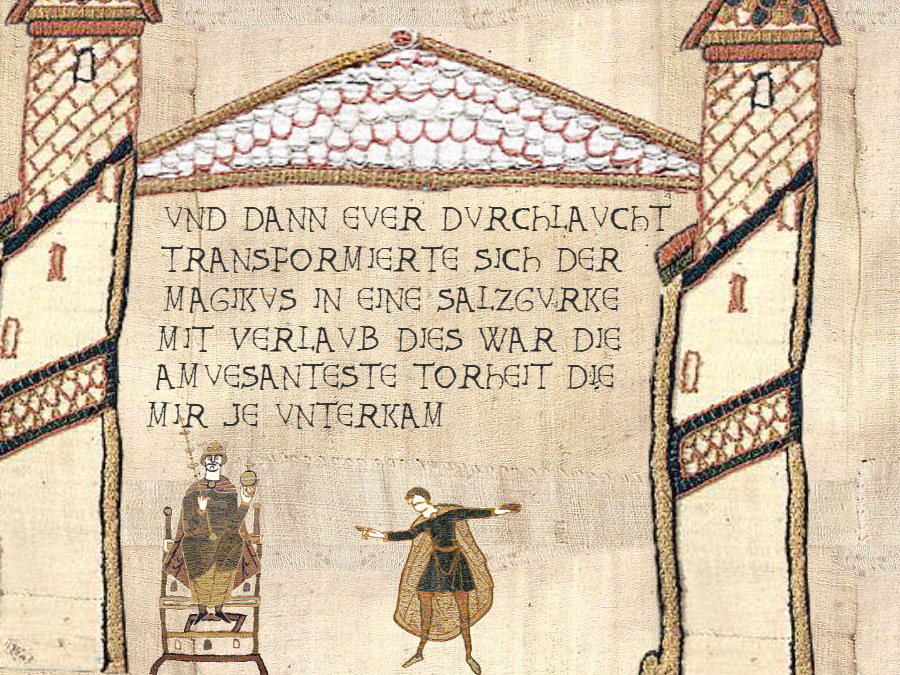 VND DANN EVER DVRChLAVChT
TRANSFORMIERTE SICh DER
MAGIKVS IN EINE SALZGVRKE
MIT VERLAVB DIES WAR DIE
AMVESANTESTE TORhEIT DIE
MIR JE VNTERKAM